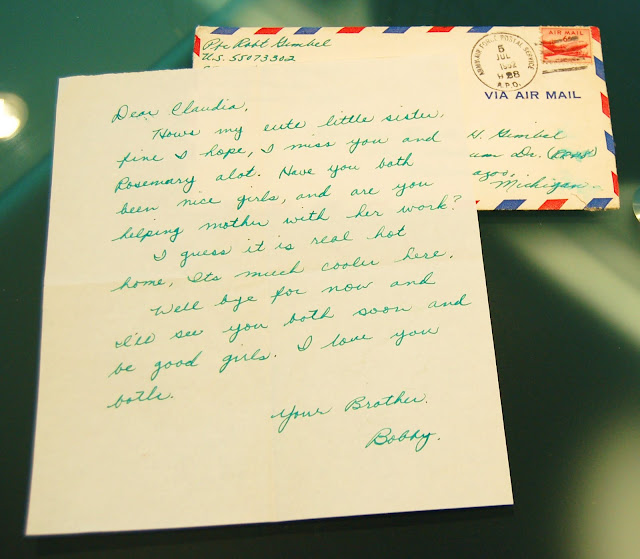 Pvt Robt Gimbel
U.S. 55073302
ARMY-AIR FORCE POSTAL SERVICE
5
JUL
1952
A.P.O.
AIR MAIL
VIA AIR MAIL
H. Gimbel
Dr.
Michigan
Dear Claudia,
Hows my cute little sister,
fine I hope, I miss you and
Rosemary alot. Have you both
been nice girls, and are you
helping mother with her work?
I guess it is real hot
home, Its much cooler here.
Well bye for now and
I'll see you both soon and
be good girls. I love you
both.
Your Brother.
Bobby.